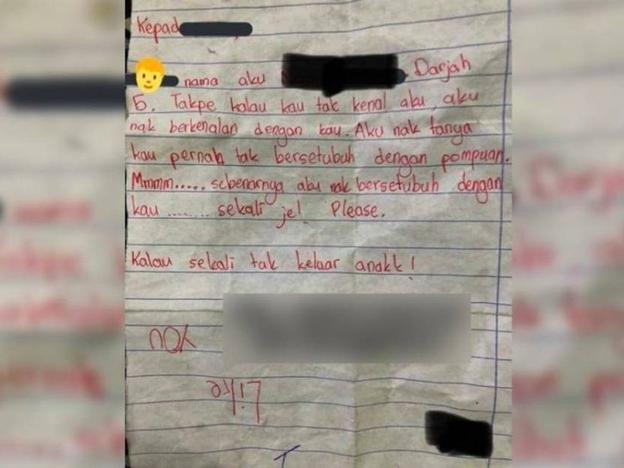 Kepad
nama aku Darjah
5. Takpe kalau kau tak kenal aku aku
nak berkenalan dengan kau. Aku nak tanya
kau pernah tak bersetubuh dengan pompuan.
Mmmm..... sebenarnya aku nak bersetubuh dengan
kau ........ sekali je! Please.
Kalau sekali tak keluar anakk!